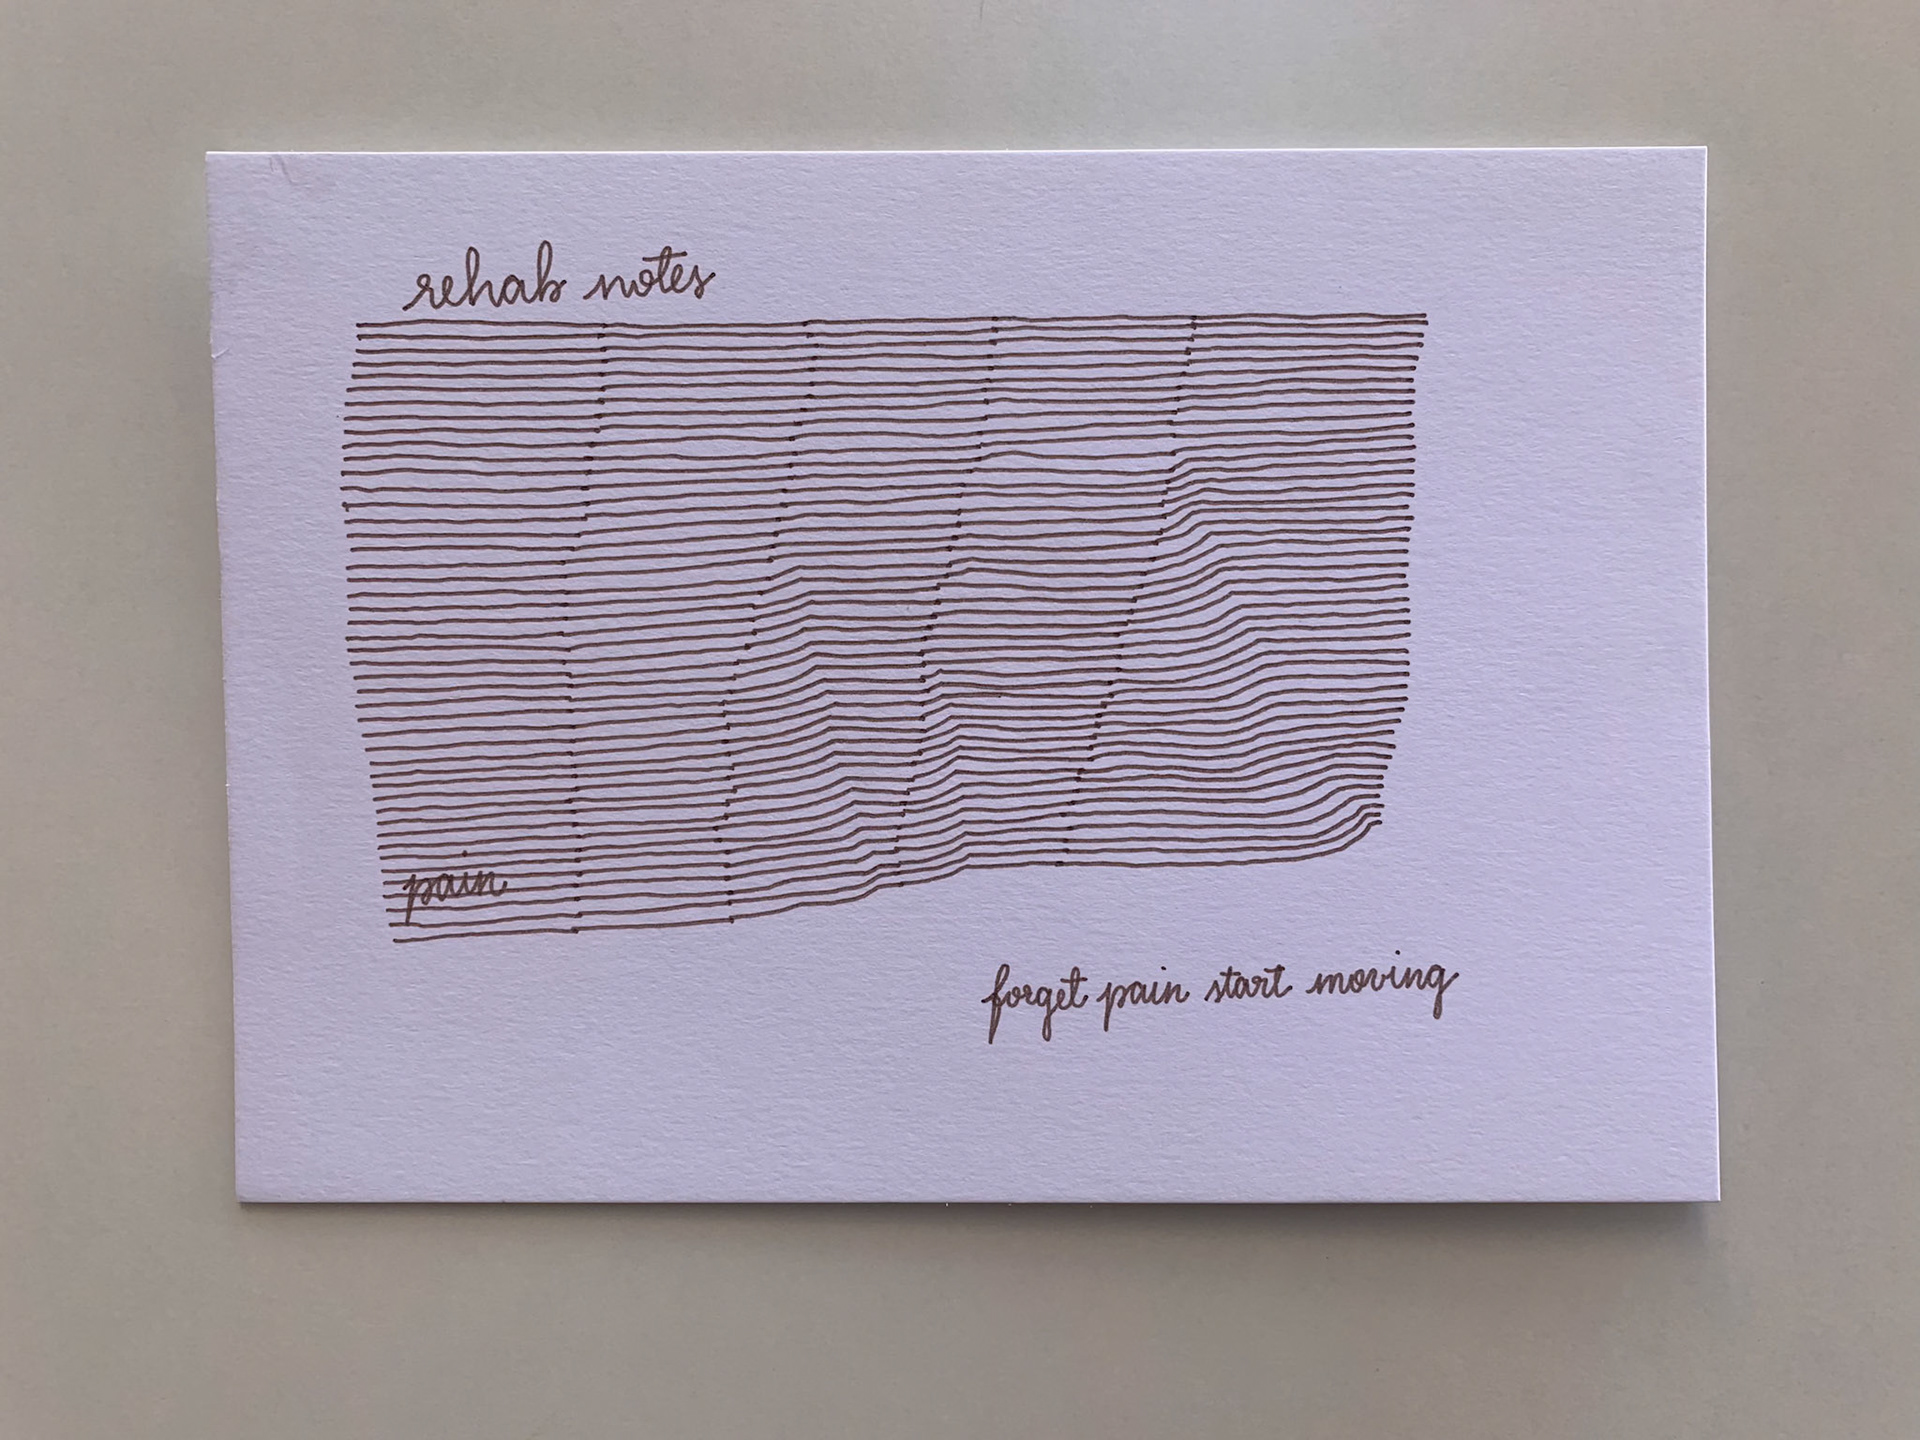 rehab notes
pain
forget pain start moving